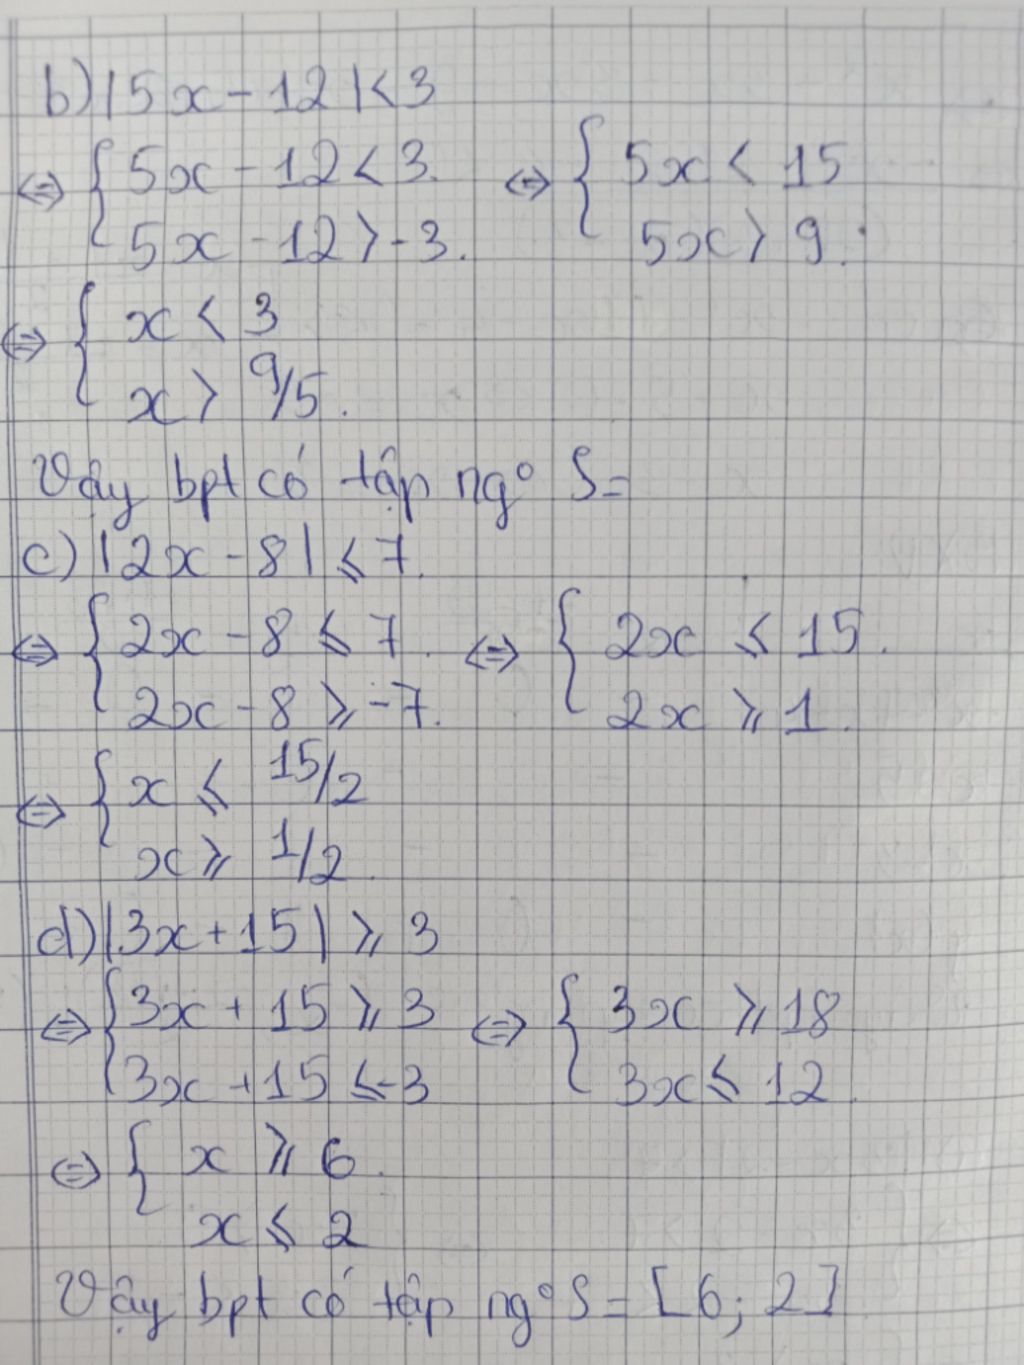 b) |5x - 12| < 3
⇔ { 5x - 12 < 3. ⇔ { 5x < 15
5x - 12 > -3. 5x > 9.
⇔ { x < 3
x > 9/5.
Vậy bpt có tập ngº S =
c) |2x - 8| ⩽ 7.
⇔ { 2x - 8 ⩽ 7. ⇔ { 2x ⩽ 15.
2x - 8 ⩾ -7. 2x ⩾ 1.
⇔ { x ⩽ 15/2
x ⩾ 1/2.
d) |3x + 15| ⩾ 3
⇔ { 3x + 15 ⩾ 3 ⇔ { 3x ⩾ 18
3x + 15 ⩽ -3 3x ⩽ 12.
⇔ { x ⩾ 6.
x ⩽ 2
Vậy bpt có tập ngº S = [6; 2]